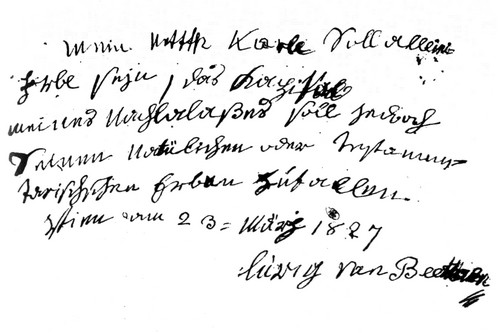 mein Neffe Karl Soll alleini
Erbe seyn, das Kapital
meines Nachlalaßes soll jedoch
Seinen Natülichen oder Testamen-
tarischschen Erben zufallen.
Wien am 23= März 1827
luwig van Beethoven